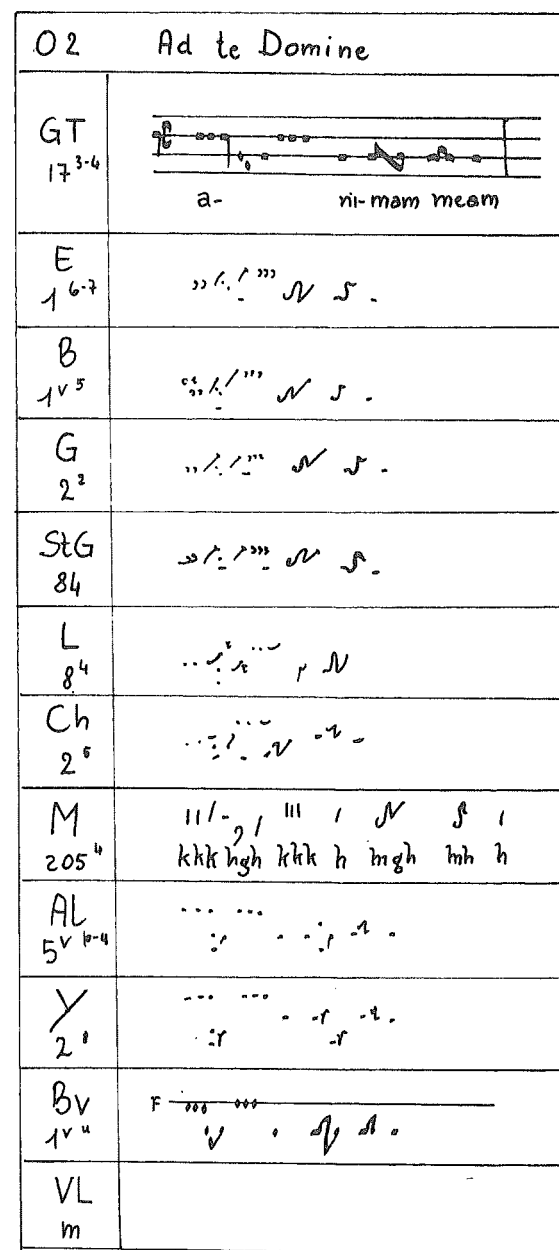 O2 Ad te Domine
GT
17³⁻⁴
a- ni-mam meam
E
1⁶⁻⁷
B
1ᵛ ⁵
G
2²
StG
84
L
8⁴
Ch
2⁶
M
205⁴
khk hgh khk h mgh mh h
AL
5ᵛ
Y
2
Bv
F
1ᵛ
VL
m